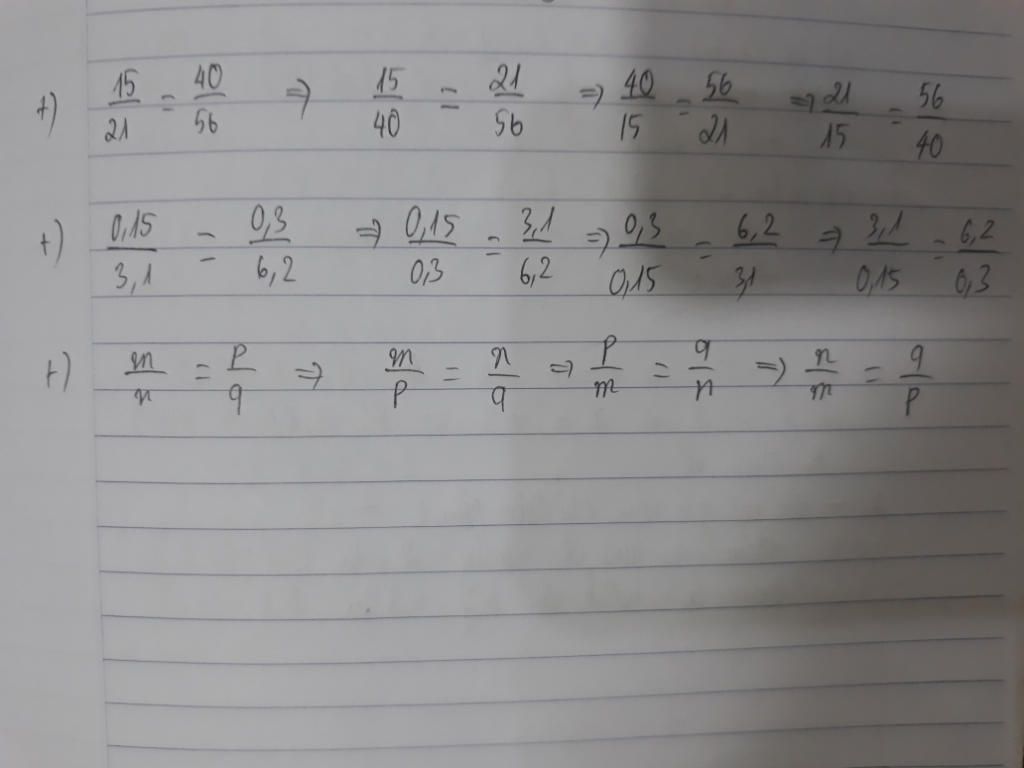 +) 15/21 = 40/56 => 15/40 = 21/56 => 40/15 = 56/21 => 21/15 = 56/40
+) 0,15/3,1 = 0,3/6,2 => 0,15/0,3 = 3,1/6,2 => 0,3/0,15 = 6,2/3,1 => 3,1/0,15 = 6,2/0,3
+) m/n = p/q => m/p = n/q => p/m = q/n => n/m = q/p